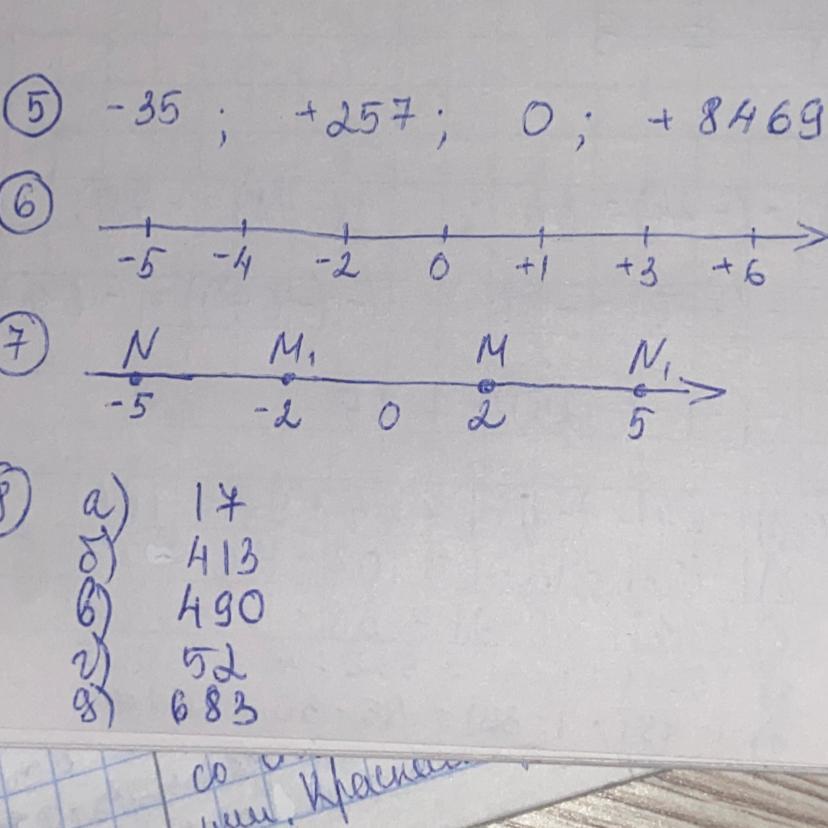 5 -35 ; +257 ; 0 ; +8469
6
-5 -4 -2 0 +1 +3 +6
7 N M₁ M N₁
-5 -2 0 2 5
а) 17
б) 413
в) 490
г) 52
д) 683
со
Краско